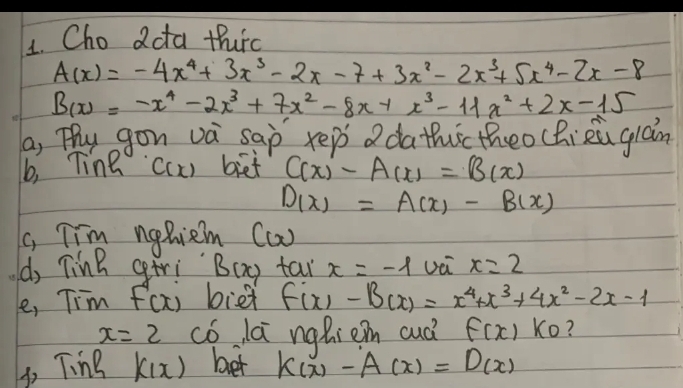 1. Cho 2 đa thức
A(x) = -4x⁴ + 3x³ - 2x - 7 + 3x² - 2x³ + 5x⁴ - 2x - 8
B(x) = -x⁴ - 2x³ + 7x² - 8x + x³ - 11x² + 2x - 15
a, Thu gọn và sắp xếp 2 đa thức theo chiều giảm
b, Tính C(x) biết C(x) - A(x) = B(x)
D(x) = A(x) - B(x)
c, Tìm nghiệm C(x)
d, Tính gtrị B(x) tại x = -1 và x = 2
e, Tìm F(x) biết F(x) - B(x) = x⁴ + x³ + 4x² - 2x - 1
x = 2 có là nghiệm của F(x) ko?
f, Tính K(x) biết K(x) - A(x) = D(x)